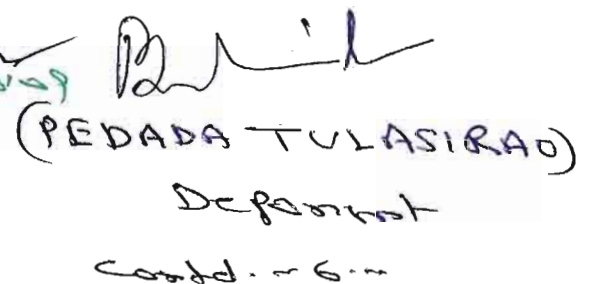 (PEDADA TULASIRAO)
Deponent
Contd. - 6 -